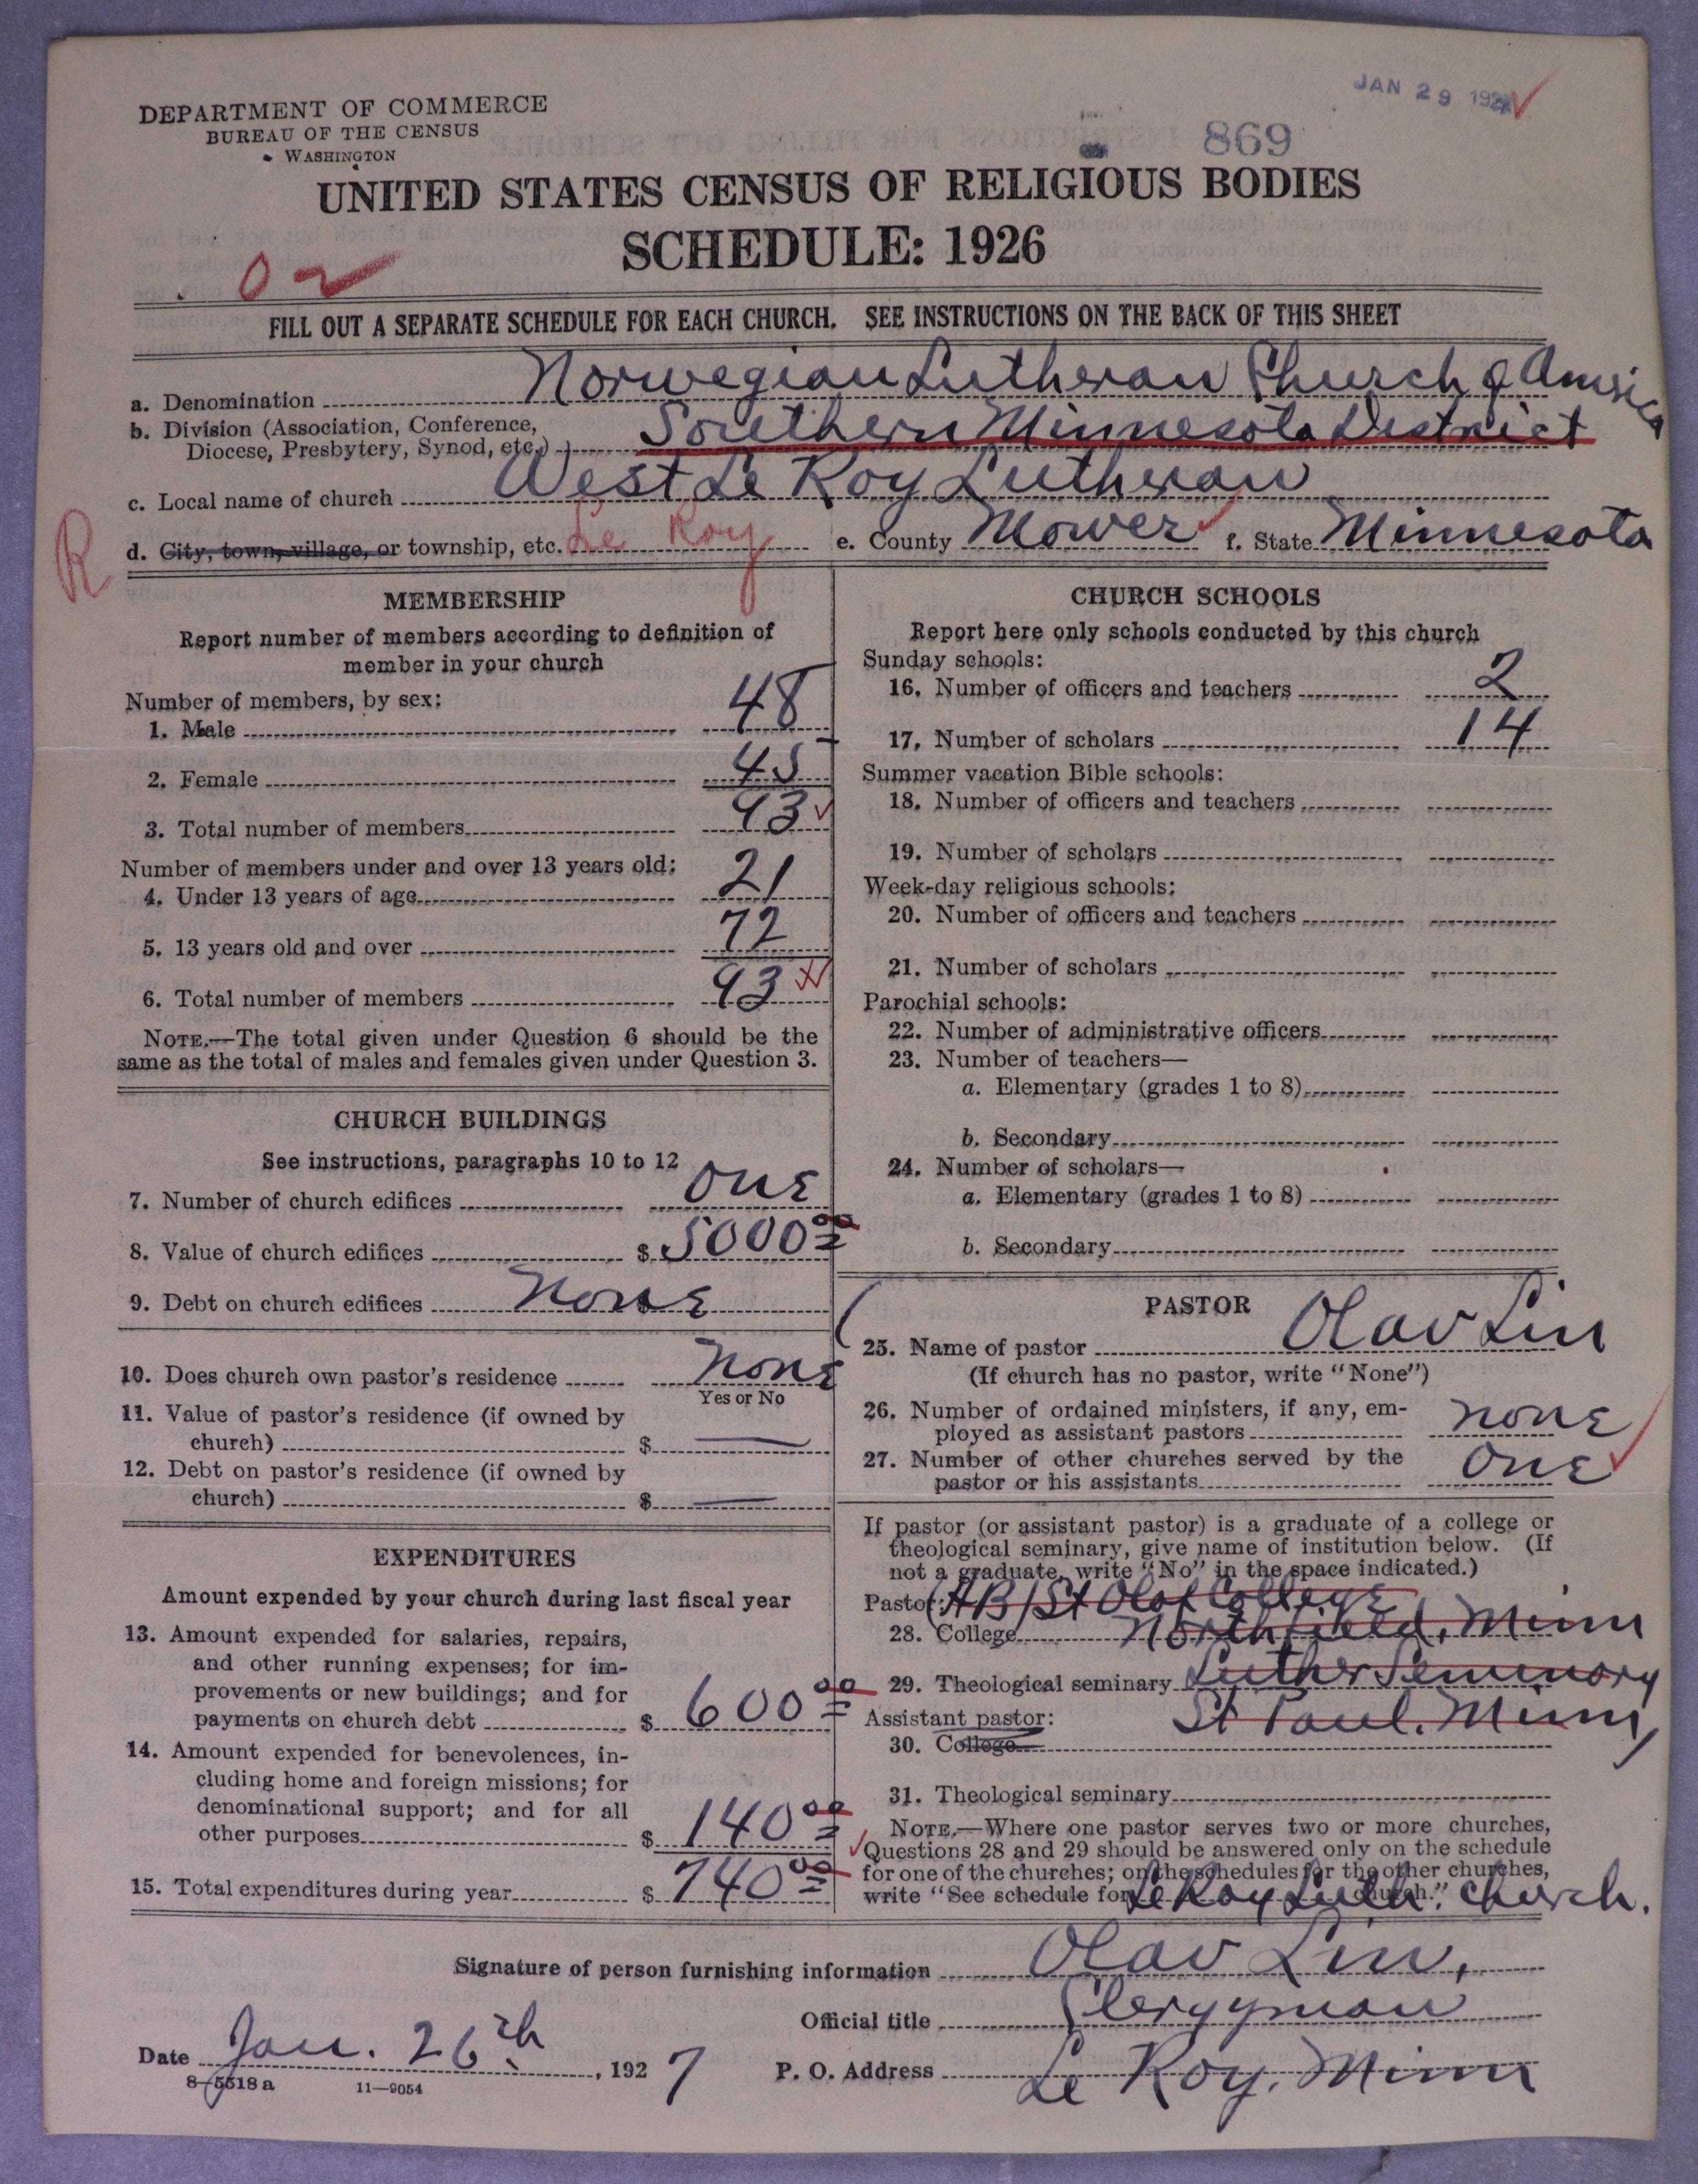 JAN 29 192
DEPARTMENT OF COMMERCE
BUREAU OF THE CENSUS
WASHINGTON
869
UNITED STATES CENSUS OF RELIGIOUS BODIES
SCHEDULE: 1926
FILL OUT A SEPARATE SCHEDULE FOR EACH CHURCH. SEE INSTRUCTIONS ON THE BACK OF THIS SHEET
a. Denomination Norwegian Lutheran Church of America
b. Division (Association, Conference, Diocese, Presbytery, Synod, etc.) Southern Minnesota District
c. Local name of church West Le Roy Lutheran
R d. City, town, village, or township, etc. Le Roy e. County Mower f. State Minnesota
MEMBERSHIP
Report number of members according to definition of
member in your church
Number of members, by sex:
1. Male 48
2. Female 45
3. Total number of members 93
Number of members under and over 13 years old:
4. Under 13 years of age 21
5. 13 years old and over 72
6. Total number of members 93
NOTE.—The total given under Question 6 should be the
same as the total of males and females given under Question 3.
CHURCH BUILDINGS
See instructions, paragraphs 10 to 12
7. Number of church edifices One
8. Value of church edifices $ 5000 00
9. Debt on church edifices None
10. Does church own pastor's residence None
Yes or No
11. Value of pastor's residence (if owned by
church) $ —
12. Debt on pastor's residence (if owned by
church) $ —
EXPENDITURES
Amount expended by your church during last fiscal year
13. Amount expended for salaries, repairs,
and other running expenses; for im-
provements or new buildings; and for
payments on church debt $ 600 00
14. Amount expended for benevolences, in-
cluding home and foreign missions; for
denominational support; and for all
other purposes $ 140 00
15. Total expenditures during year $ 740 00
CHURCH SCHOOLS
Report here only schools conducted by this church
Sunday schools:
16. Number of officers and teachers 2
17. Number of scholars 14
Summer vacation Bible schools:
18. Number of officers and teachers
19. Number of scholars
Week-day religious schools:
20. Number of officers and teachers
21. Number of scholars
Parochial schools:
22. Number of administrative officers
23. Number of teachers—
a. Elementary (grades 1 to 8)
b. Secondary
24. Number of scholars—
a. Elementary (grades 1 to 8)
b. Secondary
PASTOR
25. Name of pastor Olav Lin
(If church has no pastor, write "None")
26. Number of ordained ministers, if any, em-
ployed as assistant pastors none
27. Number of other churches served by the
pastor or his assistants One
If pastor (or assistant pastor) is a graduate of a college or
theological seminary, give name of institution below. (If
not a graduate, write "No" in the space indicated.)
Pastor: (AB) St Olaf College
28. College Northfield, Minn
29. Theological seminary Luther Seminary
Assistant pastor: St Paul, Minn
30. College
31. Theological seminary
NOTE.—Where one pastor serves two or more churches,
Questions 28 and 29 should be answered only on the schedule
for one of the churches; on the schedules for the other churches,
write "See schedule for Le Roy Luth. church." Church.
Signature of person furnishing information Olav Lin,
Official title Clergyman
Date Jan. 26th, 1927 P. O. Address Le Roy, Minn
8—5518 a 11—9054